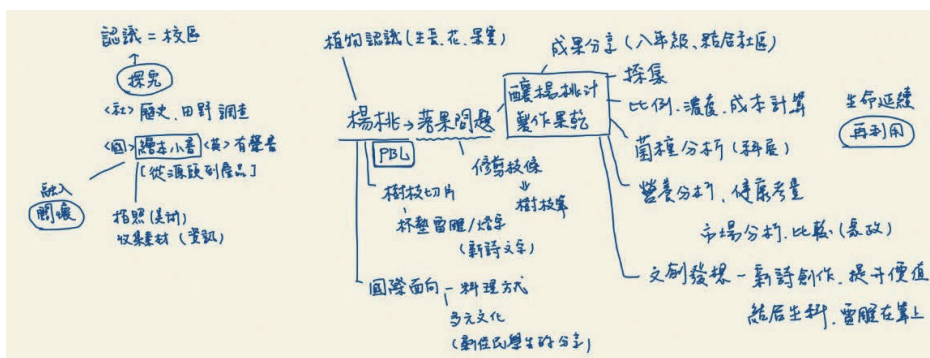 認識 = 校區
探究
<社> 歷史、田野調查
<國> 繪本小書 <英> 有聲書
[從源頭到產品]
融入
關懷
拍照(美術)
收集素材 (資訊)
植物認識(生長、花、果實)
楊桃→落果問題
PBL
修剪枝條
⇓
樹枝筆
樹枝切片
杯墊雷雕/燈座
(新詩文字)
國際面向 - 料理方式
多元文化
(新住民學生的分享)
釀楊桃汁
製作果乾
成果分享 (八年級、結合社區)
採集
比例、濃度、成本計算
菌種分析 (科展)
營養分析、健康考量
市場分析、比較 (家政)
文創發想 - 新詩創作、提升價值
結合生科、雷雕在筆上
生命延續
再利用